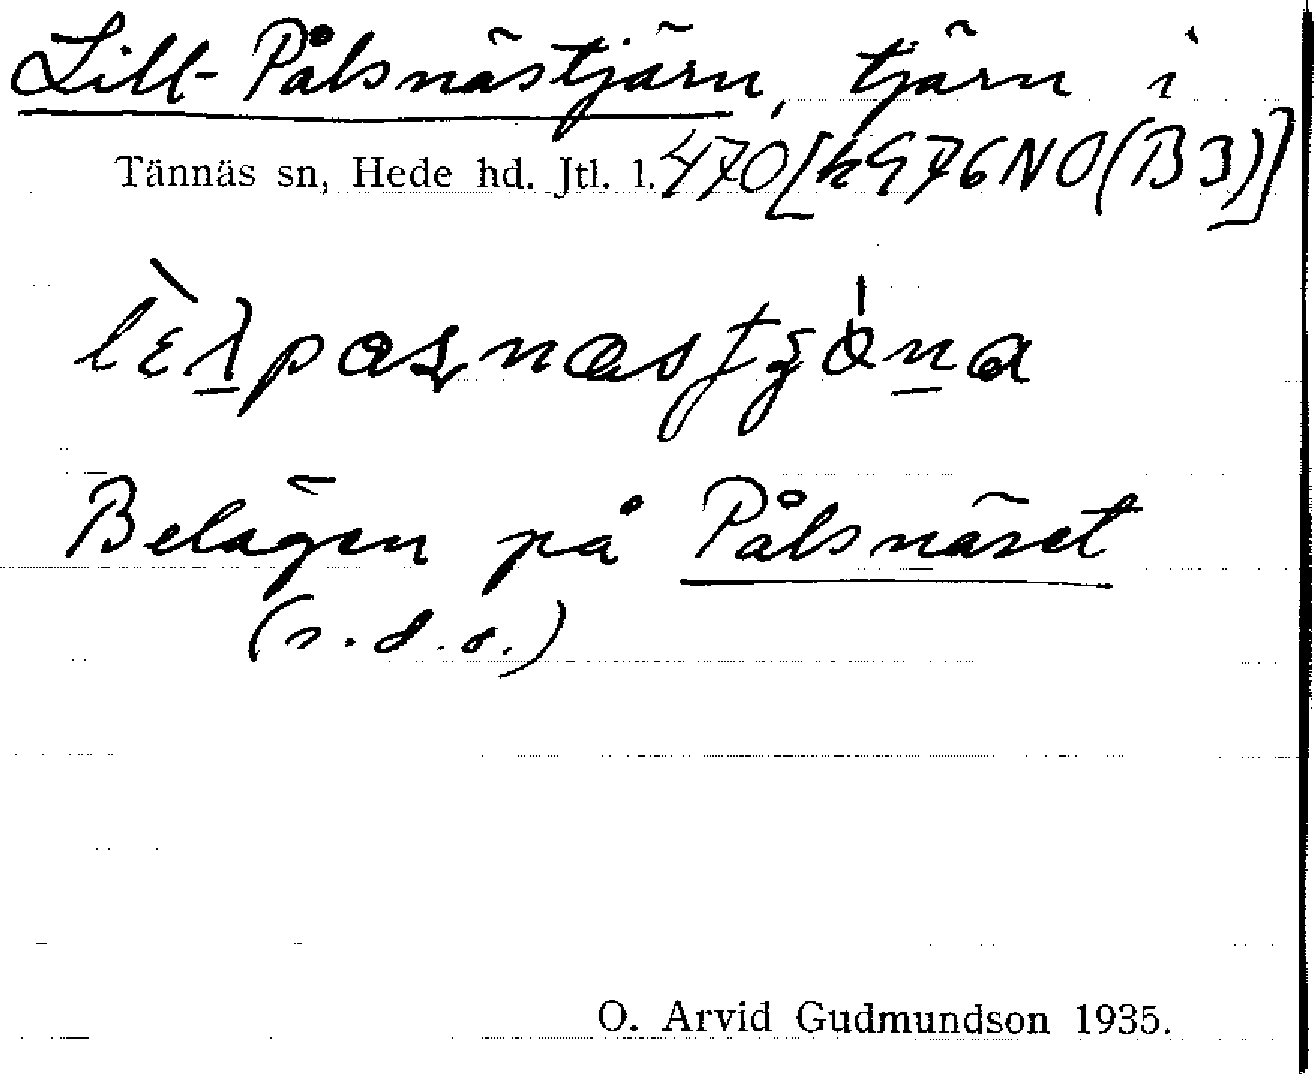 Lill-Pålsnästjärn, tjärn i
Tännäs sn, Hede hd. Jtl. l. 470[k976NO(B3)]
Belägen på Pålsnäset
(s.d.o.)
O. Arvid Gudmundson 1935.